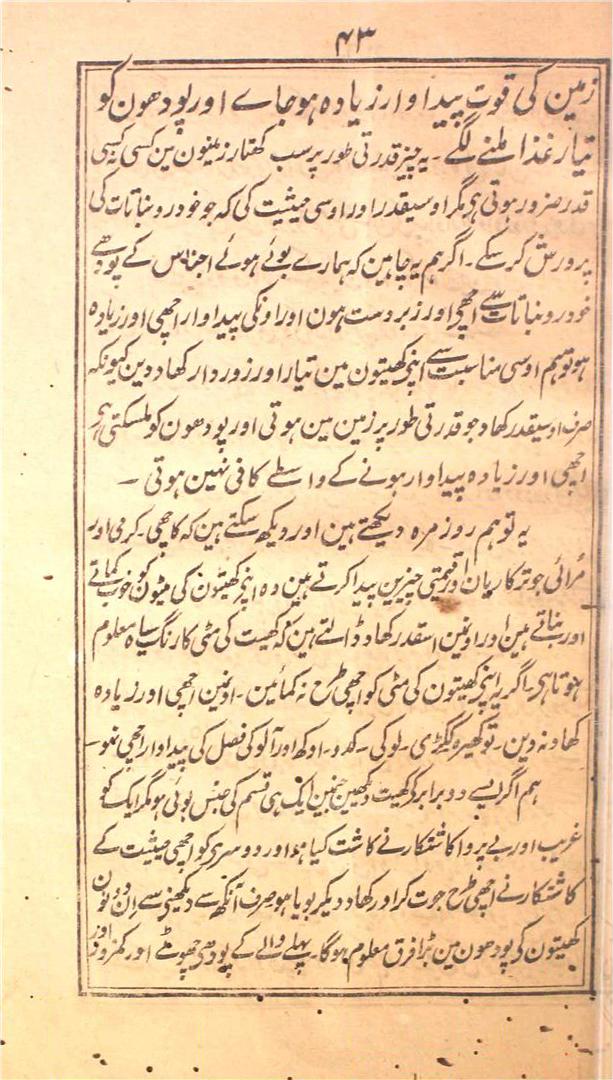 ۴۳
زمین کی قوت پیداوار زیادہ ہوجاے اور پودھون کو
تیار غذا ملنے لگے ۔ یہ چیز قدرتی طور پر سب کھتار زمینون مین کسی نہ کسی
قدر ضرور ہوتی ہی مگر اوسیقدر اور اوسی حیثیت کی کہ جو خودرو نباتات کی
پرورش کرسکے ۔ اگر ہم یہ چاہین کہ ہمارے بوئے ہوئے اجناس کے پودھے
خودرو نباتات سے اچھے اور زبردست ہون اور اونکی پیداوار اچھی اور زیادہ
ہو تو ہم اوسی مناسبت سے اپنے کھیتون مین تیار اور زوردار کھاد دین کیونکہ
صرف اوسیقدر کھاد جو قدرتی طور پر زمین مین ہوتی اور پودھون کو ملسکتی ہی
اچھی اور زیادہ پیداوار ہونے کے واسطے کافی نہین ہوتی ۔
یہ تو ہم روز مرہ دیکھتے ہین اور دیکھ سکتے ہین کہ کاچھی ۔ کرمی اور
مُرائی جو ترکاریان اور قیمتی چیزین پیدا کرتے ہین وہ اپنے کھیتون کی مٹیون کو خوب کماتے
اور بناتے ہین اور اونمین اسقدر کھاد ڈالتے ہین کہ کھیت کی مٹی کا رنگ سیاہ معلوم
ہوتا ہی ۔ اگر یہ اپنے کھیتون کی مٹی کو اچھی طرح نہ کمائین ۔ اونمین اچھی اور زیادہ
کھاد نہ دین ۔ تو کھیرہ ککڑی ۔ لوکی ۔ کدو ۔ اوکھ اور آلو کی فصل کی پیداوار اچھی نہو ۔
ہم اگر ایسے دو برابر کے کھیت دیکھین جنمین ایک ہی قسم کی جنس بوئی ہو مگر ایک کو
غریب اور بے پروا کاشتکار نے کاشت کیا ہو اور دوسری کو اچھی حیثیت کے
کاشتکار نے اچھی طرح جوت کر اور کھاد دیکر بویا ہو صرف آنکھ سے دیکھنی سے اِن دونون
کھیتون کی پودھون مین بڑا فرق معلوم ہوگا ۔ پہلے والے کے پودھی چھوٹے اور کمزور اور